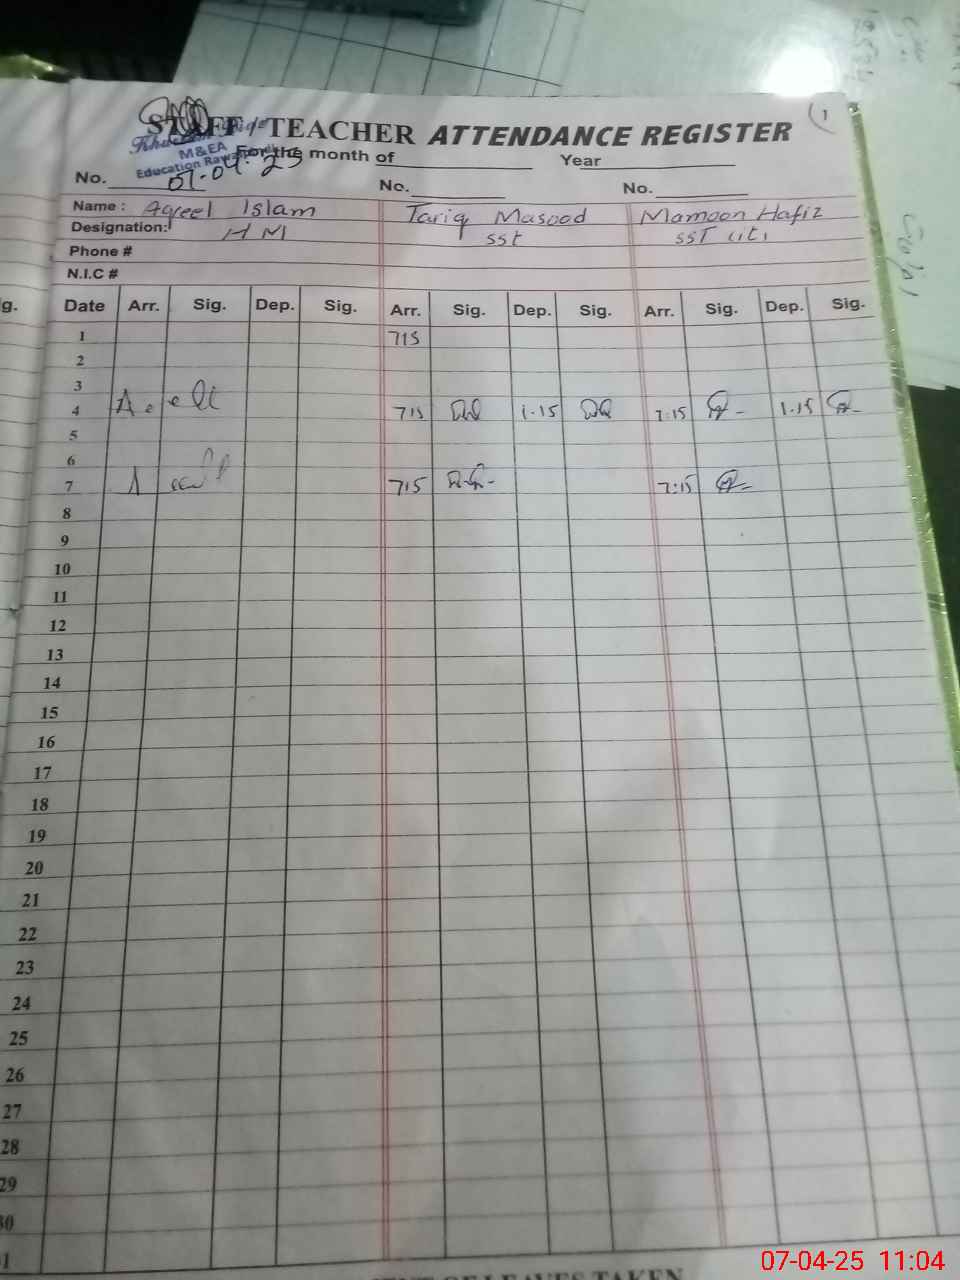 STAFF / TEACHER ATTENDANCE REGISTER
1
M&EA
Education Rawalpindi
For the month of Year
No. 07-04-25 No. No.
Name : Aqeel Islam Tariq Masood Mamoon Hafiz
Designation: HM SST SST (IT)
Phone #
N.I.C #
g. Date Arr. Sig. Dep. Sig. Arr. Sig. Dep. Sig. Arr. Sig. Dep. Sig.
1 715
2
3
4 715 1.15 7:15 1.15
5
6
7 715 7:15
8
9
10
11
12
13
14
15
16
17
18
19
20
21
22
23
24
25
26
27
28
29
30
31
OF LEAVES TAKEN
07-04-25 11:04